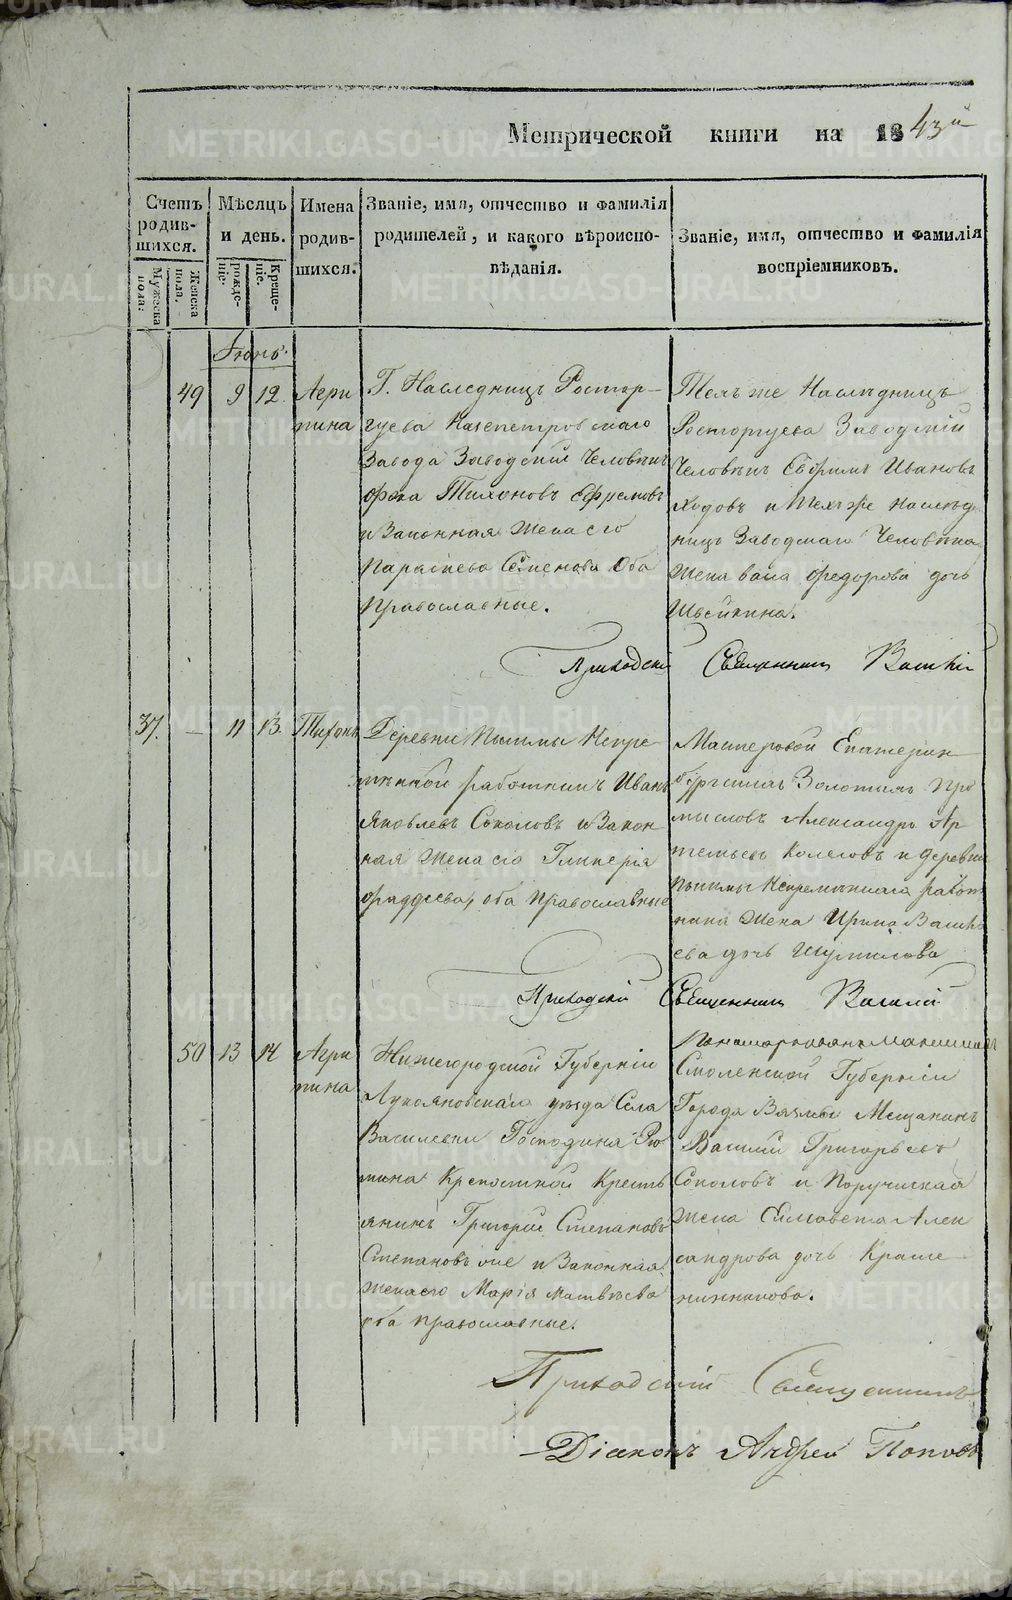 Метрической книги на 1843й
Счетъ родив-шихся.
Мужеска пола.
Женска пола.
Мѣсяцъ и день.
Рожде-ніе.
Креще-ніе.
Имена родив-шихся.
Званіе, имя, отчество и фамилія
родителей, и какого вѣроиспо-
вѣданія.
Званіе, имя, отчество и фамилія
воспріемниковъ.
Іюнь.
49 9 12 Агри
пина
Г. Наследницъ Растор-
гуева
Завода Заводскій Человѣкъ
Тихоновъ Ефремовъ
и Законная Жена его
Параскева Семенова Оба
Православные.
Тѣхъ же Наслѣдницъ
Расторгуева Заводскій
Человѣкъ Ефимъ Ивановъ
Ходовъ и Тѣхъ же наслѣд
ницъ Заводскаго Человѣка
Жена Федорова дочь
Швейкина.
Приходскій Священникъ
37. — 11 13 Тихонъ
Деревни Пышмы Непре
мѣнной работникъ Иванъ
Яковлевъ Соколовъ и Закон
ная Жена его Гликерія
Фаддеева, оба Православные
Мастеровой Екатерин
бургскихъ Золотыхъ про
мысловъ Александръ Ар
темьевъ Колеговъ и деревни
Пышмы Непремѣннаго работ
ника Жена Ирина Василь
ева дочь Шумилова
Приходскій Священникъ Василій
50 13 14 Агри
пина
Нижегородской Губерніи
Лукояновскаго уѣзда Села
Василевки Господина
Крепостной Кресть
янинъ Григорій Степановъ
Степановъ же и Законная
жена его Марія Матвѣева
оба православные.
Смоленской Губерніи
Города Вязьмы Мещанинъ
Василий Григорьевъ
Соколовъ и Поручицкая
Жена Елисавета Алек
сандрова дочь Краше
нинникова.
Приходскій Священникъ
Діаконъ Андрей Поповъ
METRIKI.GASO-URAL.RU